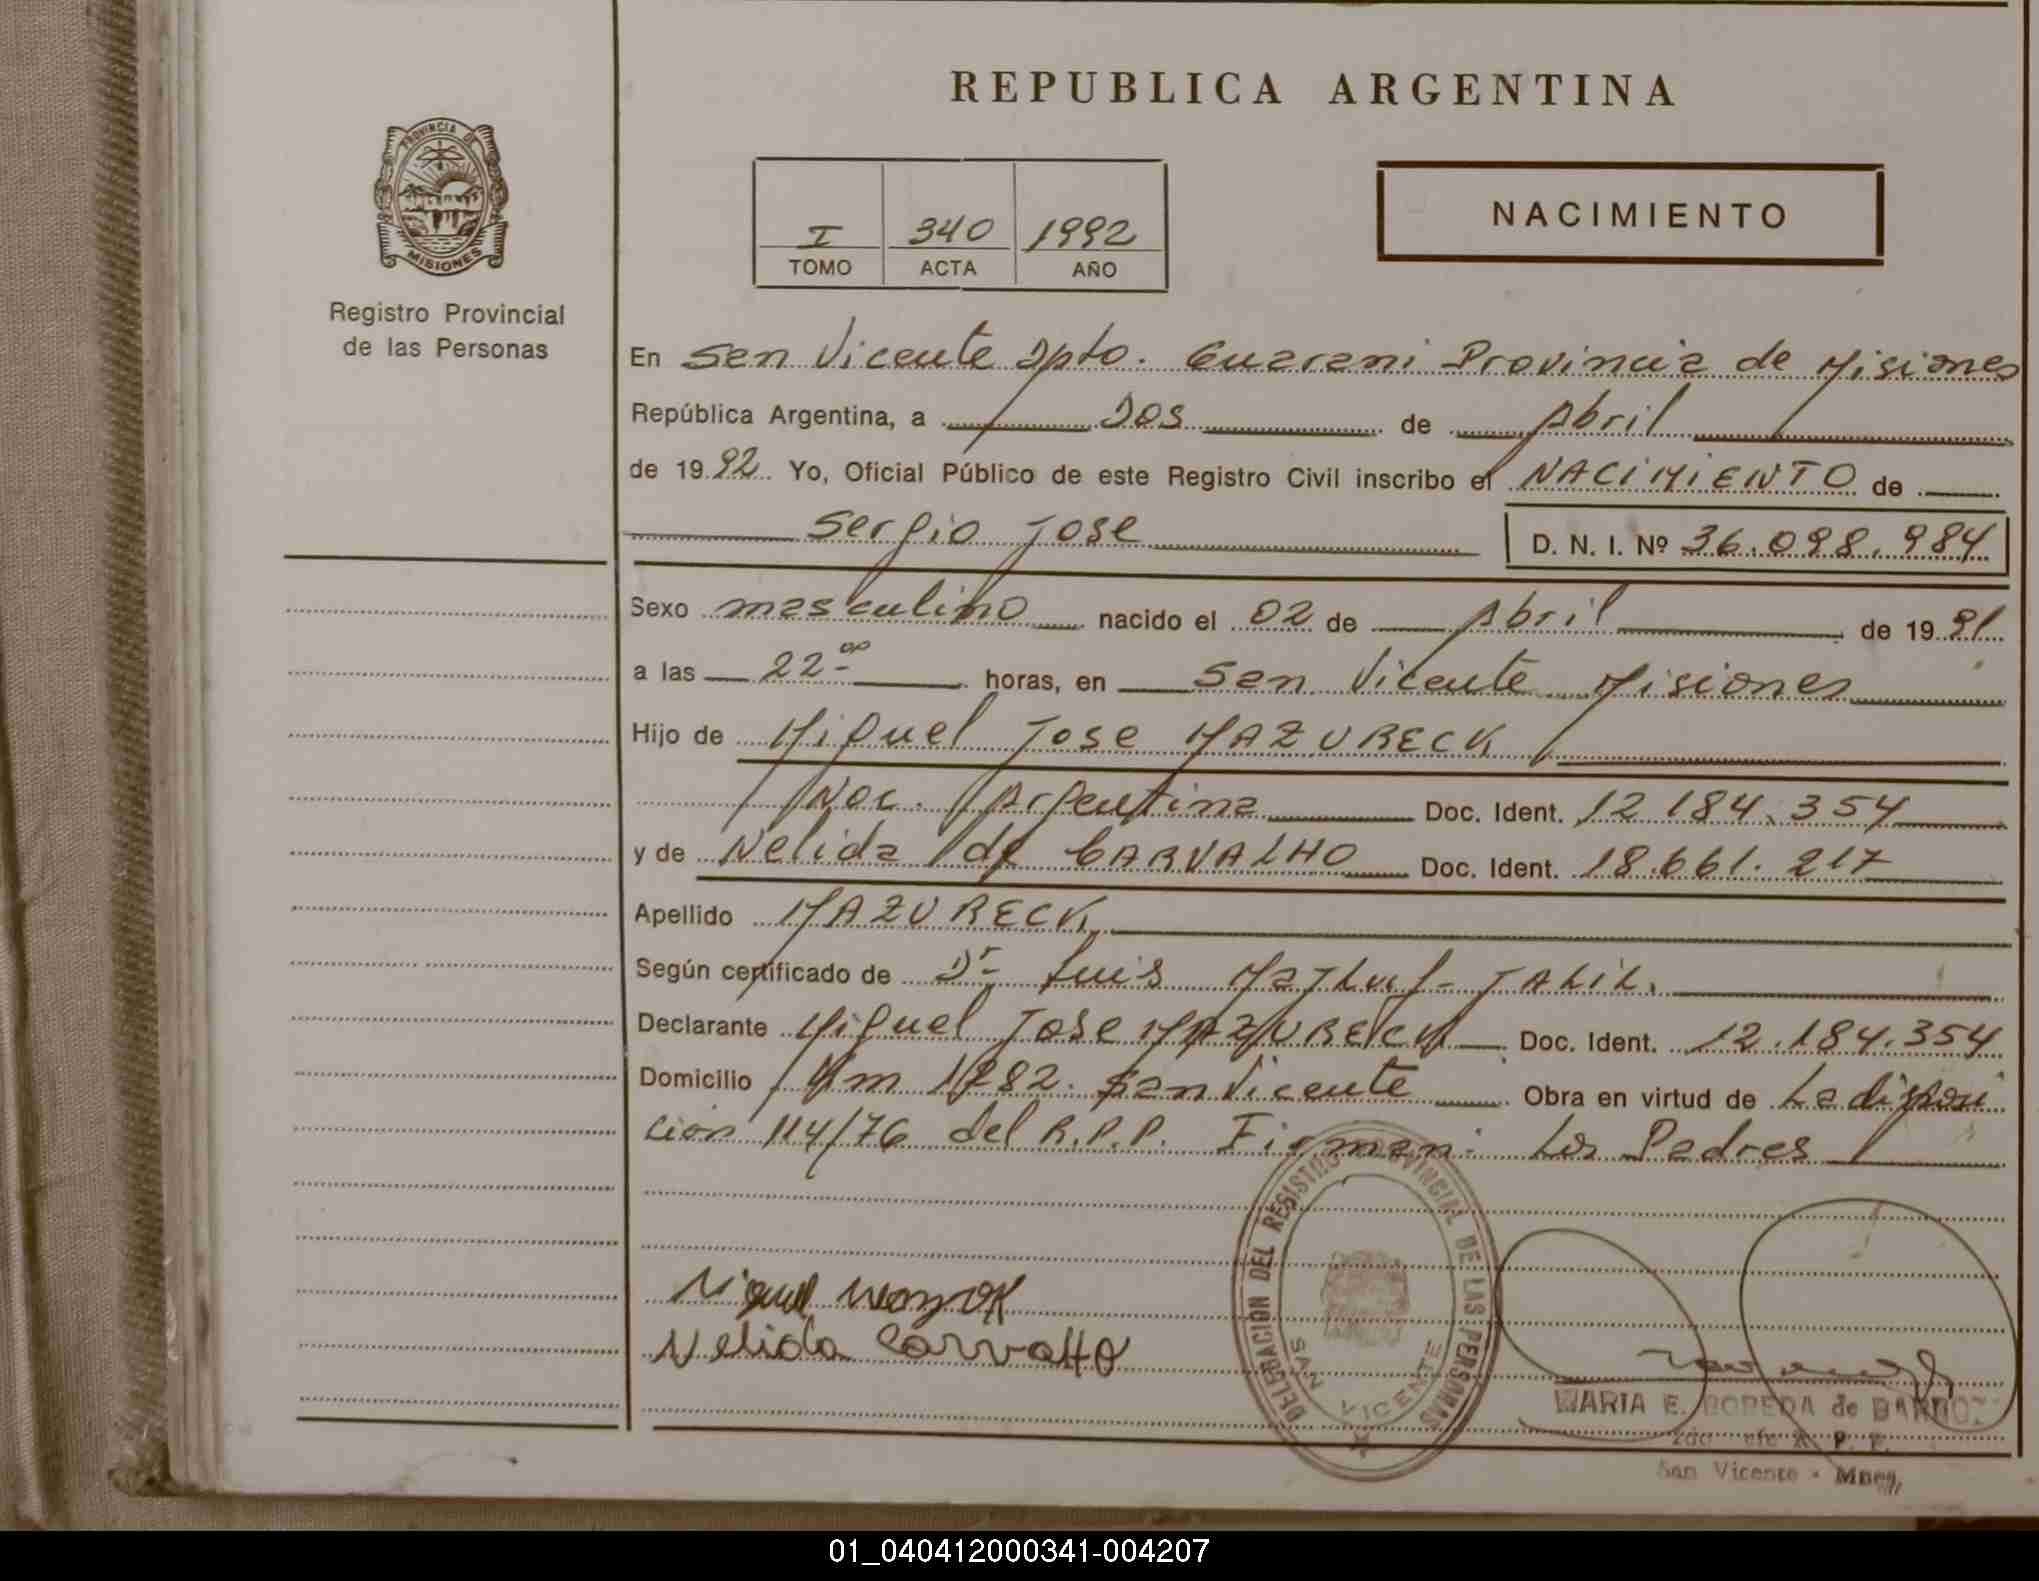 REPUBLICA ARGENTINA
PROVINCIA DE
MISIONES
Registro Provincial
de las Personas
I 340 1992
TOMO ACTA AÑO
NACIMIENTO
En San Vicente Dpto. Guarani Provincia de Misiones
República Argentina, a Dos de Abril
de 1992 Yo, Oficial Público de este Registro Civil inscribo el NACIMIENTO de
Sergio Jose D. N. I. Nº 36.098.984
Sexo masculino nacido el 02 de Abril de 1991
a las 22 00 horas, en San Vicente Misiones
Hijo de Miguel Jose MAZURECK
Nac. Argentina Doc. Ident. 12 184.354
y de Nelida de CARVALHO Doc. Ident. 18.661.217
Apellido MAZURECK
Según certificado de Dr Luis JALIL.
Declarante Miguel Jose MAZURECK Doc. Ident. 12.184.354
Domicilio Km 1282. San Vicente Obra en virtud de La disposi
ción 114/76 del R.P.P. Firman: Los Padres
DELEGACION DEL REGISTRO PROVINCIAL DE LAS PERSONAS
SAN VICENTE
Miguel
Nelida Carvalho
MARIA E. de
San Vicente - Mnes.
01_040412000341-004207